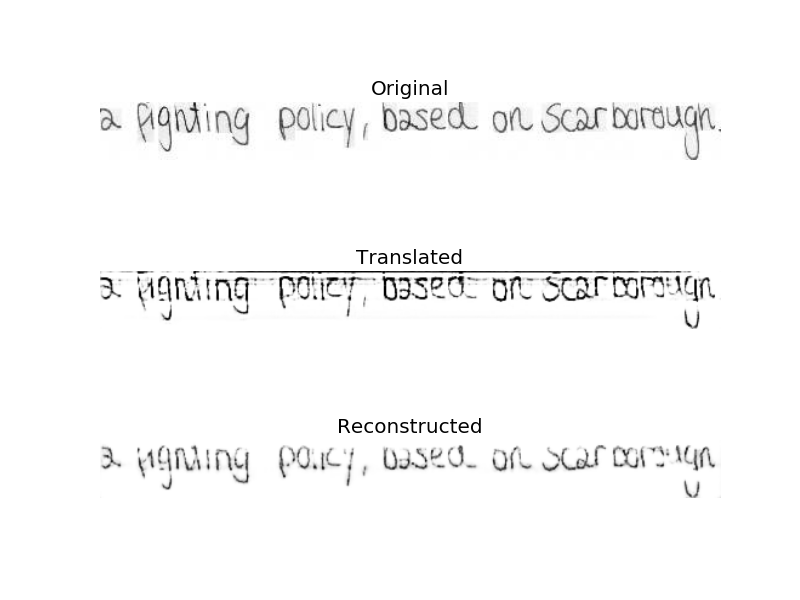 Original
a fighting policy, based on Scarborough.
Translated
a fighting policy, based on Scarborough
Reconstructed
a fighting policy, based on Scarborough